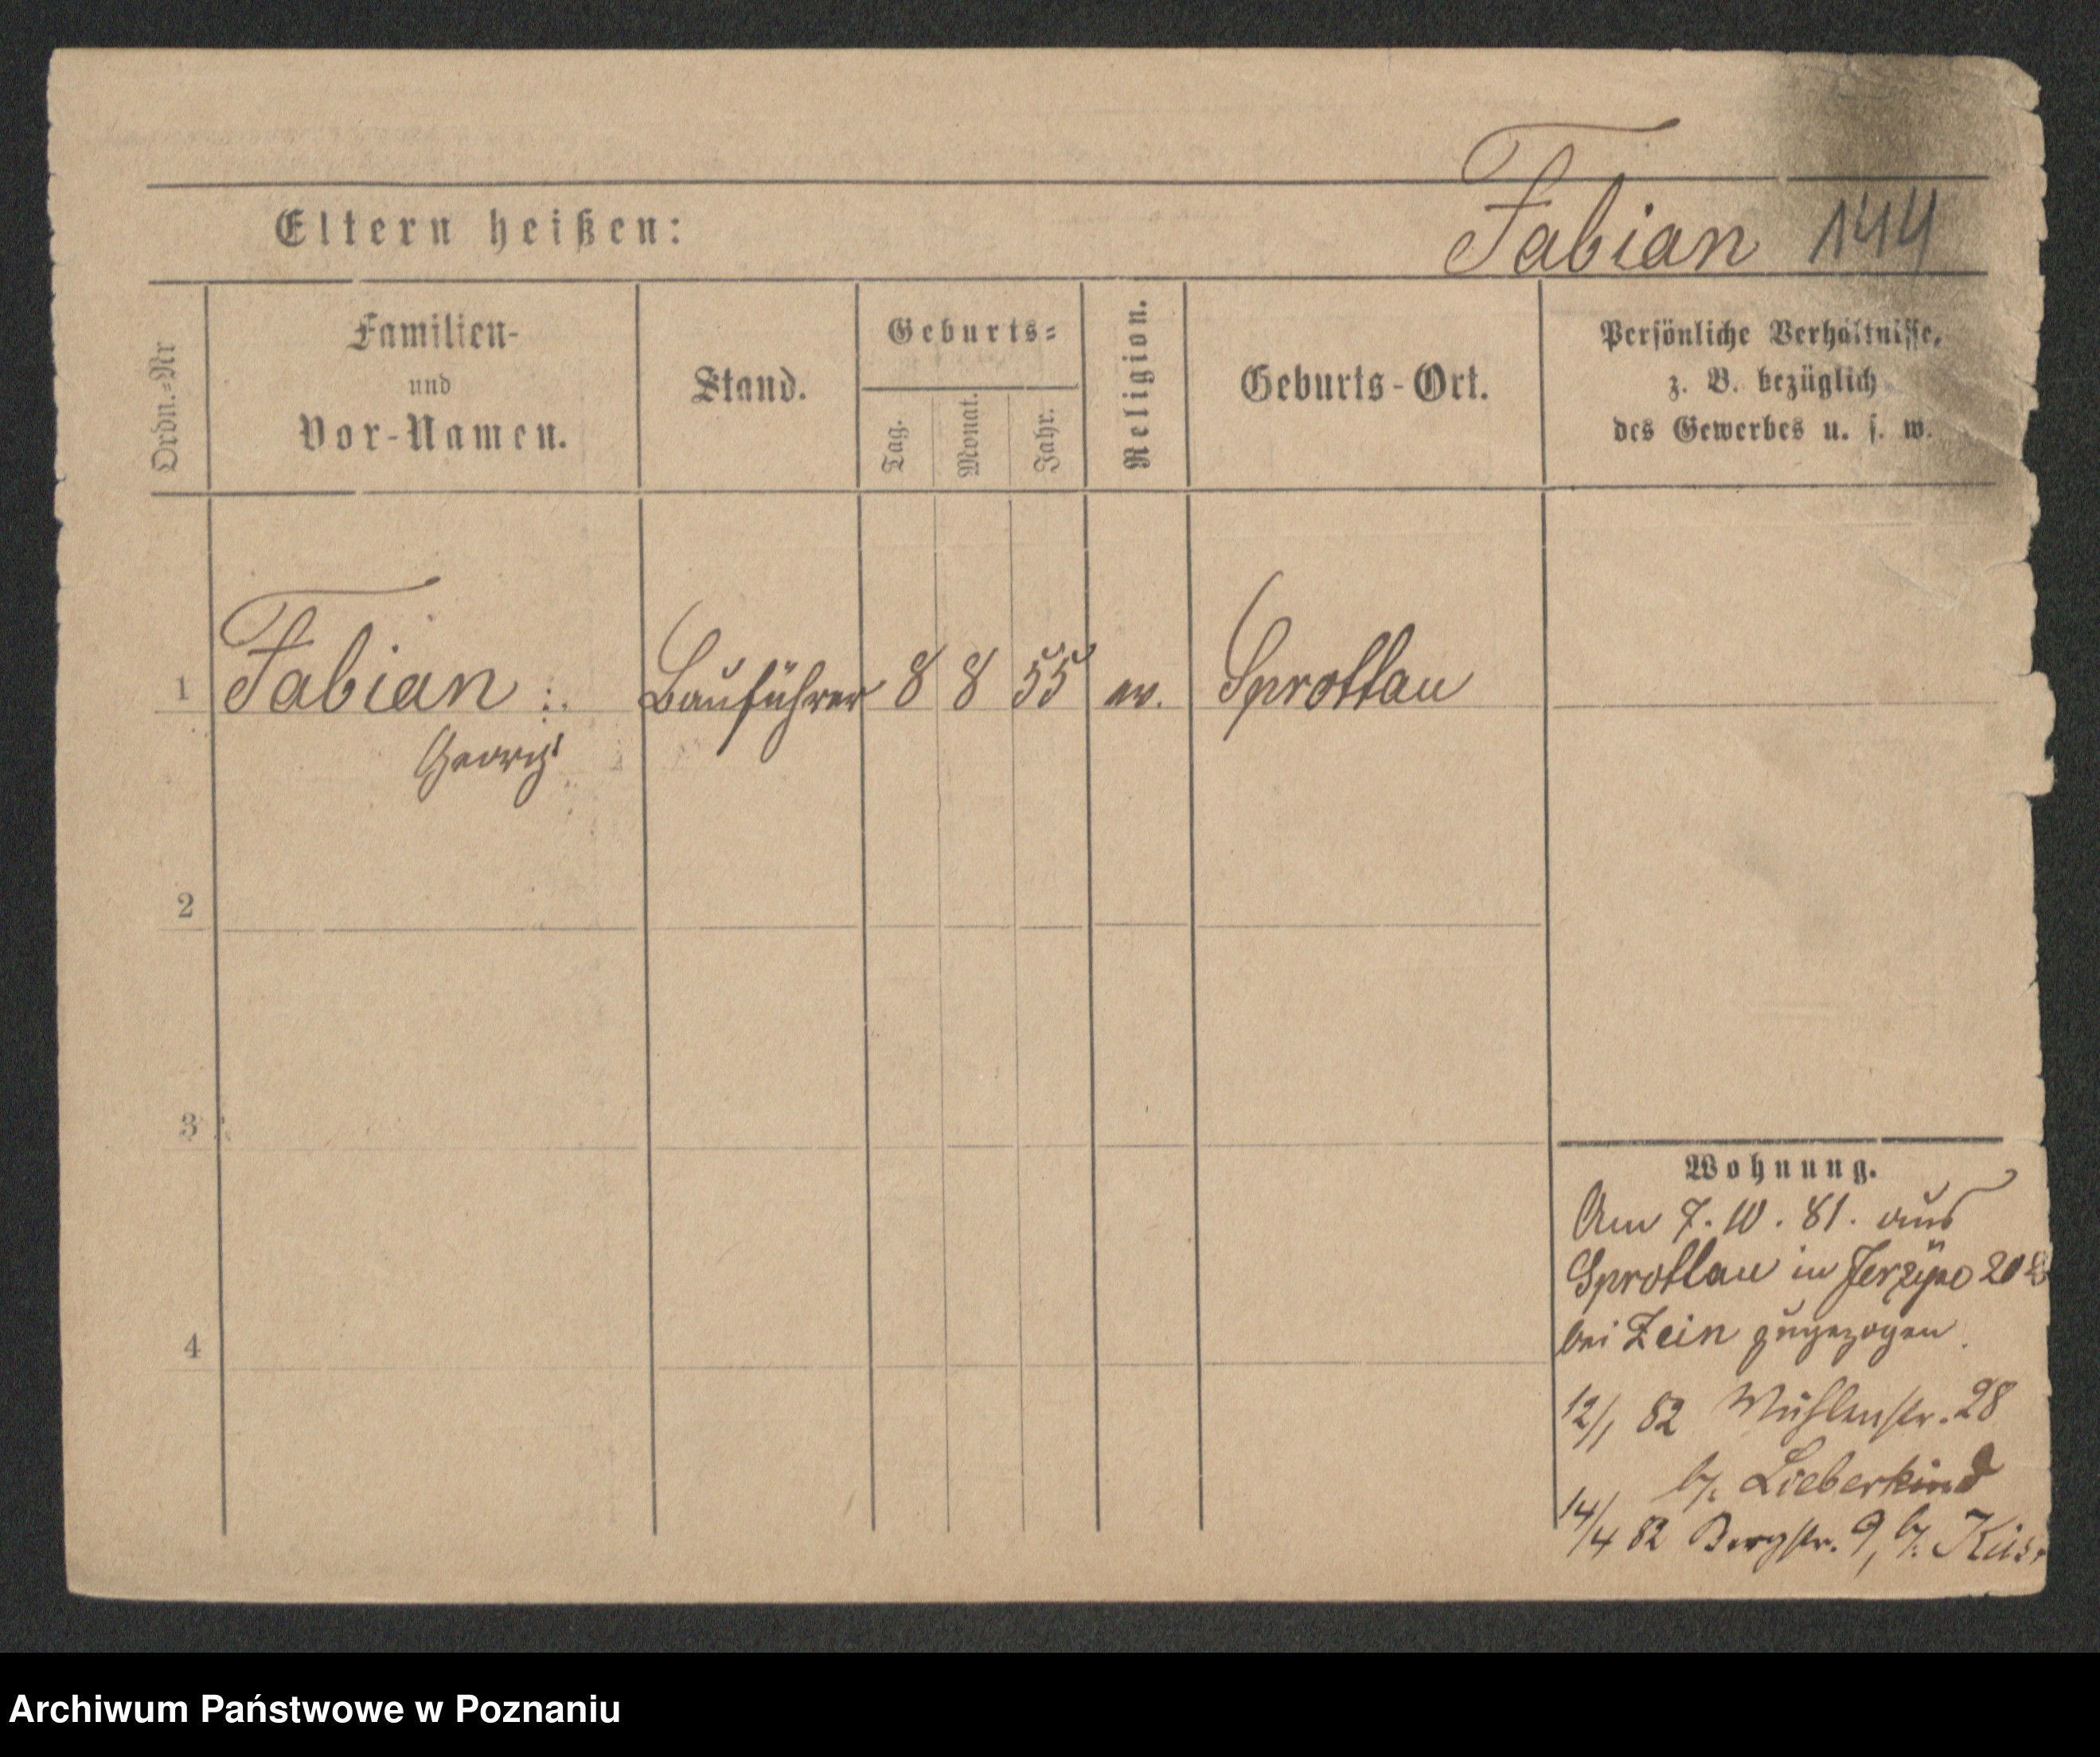 Fabian 144
Eltern heißen:
Ordn.=Nr
Familien-
und
Vor-Namen.
Stand.
Geburts=
Tag.
Monat.
Jahr.
Religion.
Geburts-Ort.
Persönliche Verhältnisse,
z. B. bezüglich
des Gewerbes u. s. w.
1 Fabian :. Bauführer 8 8 55 ev. Sprottau
Georg
2
3
4
Wohnung.
Am 7. 10. 81. aus
Sprottau in Jerzyce 20
bei Zein zugezogen.
12/1 82 Mühlenstr. 28
b. Lieberkind
14/4 82 Bergstr. 9, b.
Archiwum Państwowe w Poznaniu